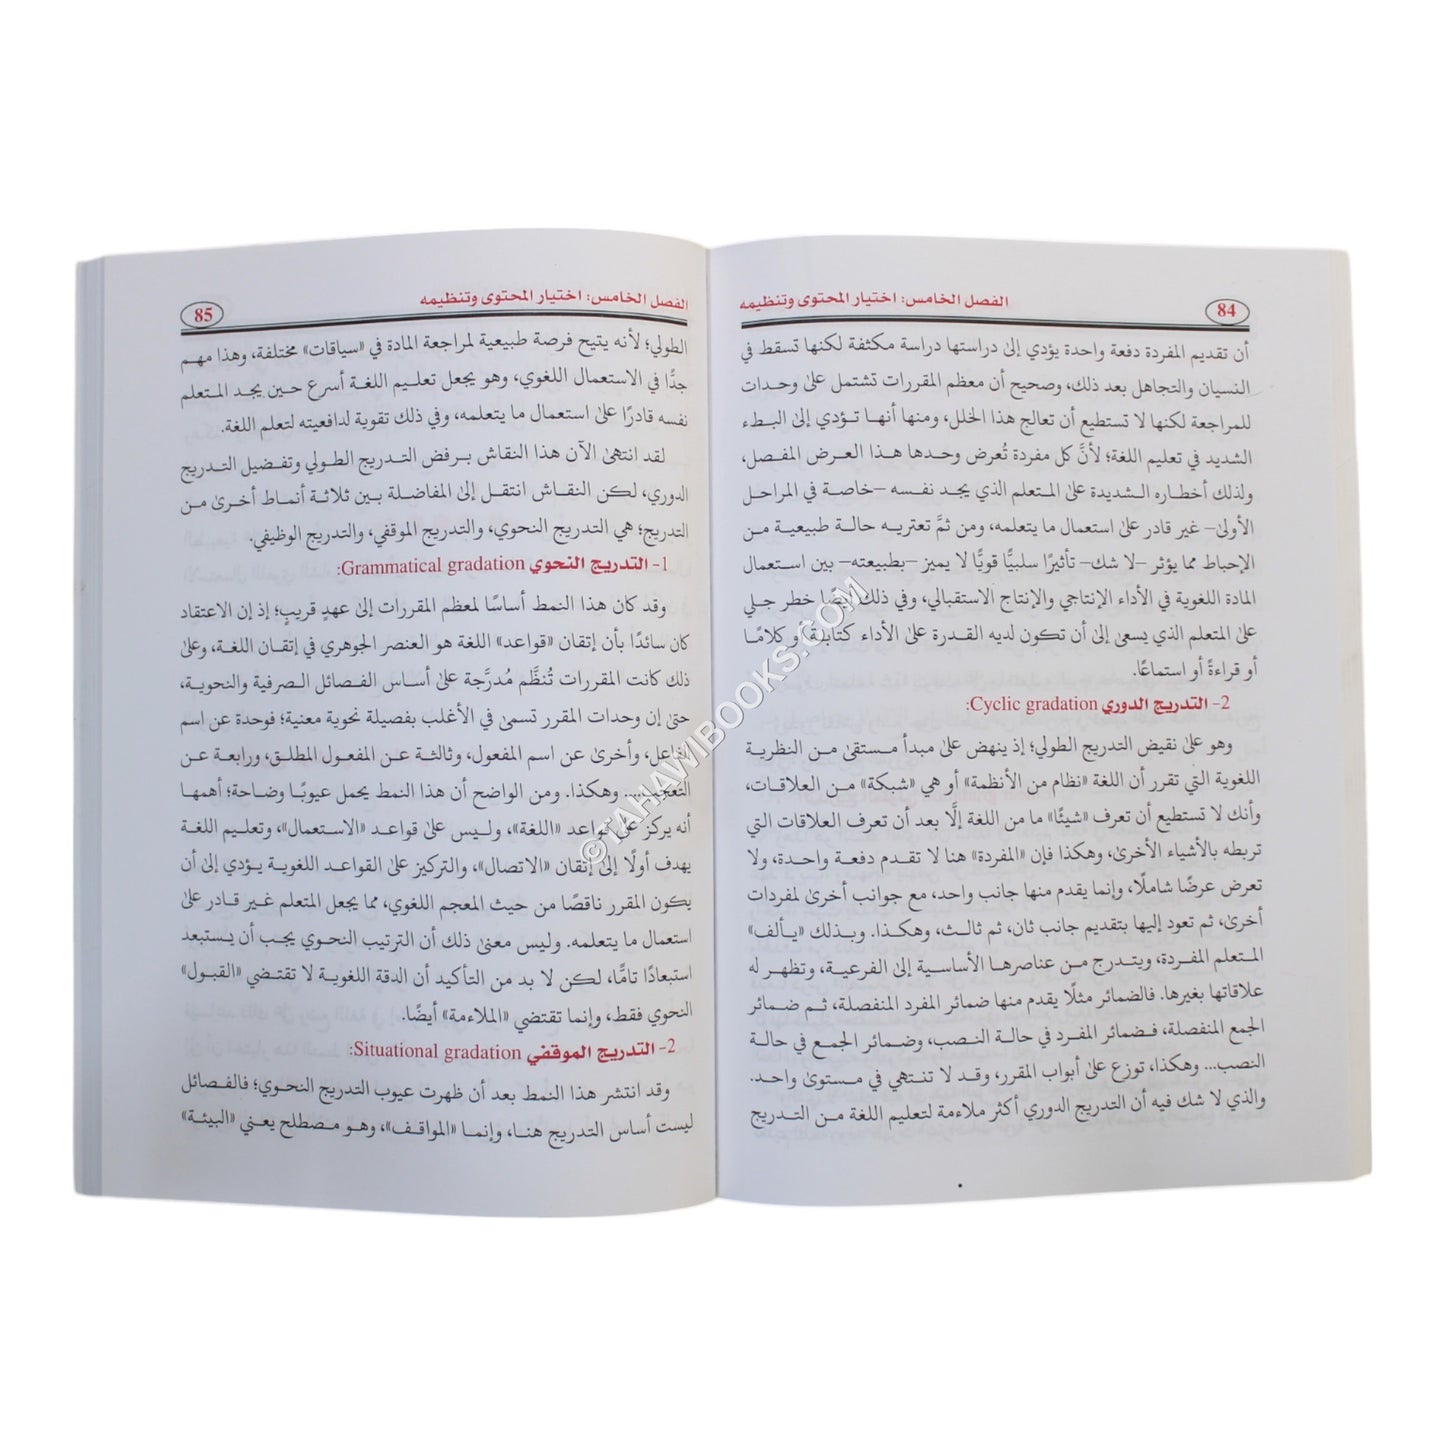 84
الفصل الخامس: اختيار المحتوى وتنظيمه
أن تقديم المفردة دفعة واحدة يؤدي إلى دراستها دراسة مكثفة لكنها تسقط في
النسيان والتجاهل بعد ذلك، وصحيح أن معظم المقررات تشتمل على وحدات
للمراجعة لكنها لا تستطيع أن تعالج هذا الخلل، ومنها أنها تؤدي إلى البطء
الشديد في تعليم اللغة؛ لأنَّ كل مفردة تُعرض وحدها هذا العرض المفصل،
ولذلك أخطاره الشديدة على المتعلم الذي يجد نفسه –خاصة في المراحل
الأولى– غير قادر على استعمال ما يتعلمه، ومن ثمَّ تعتريه حالة طبيعية من
الإحباط مما يؤثر –لا شك– تأثيرًا سلبيًّا قويًّا لا يميز –بطبيعته– بين استعمال
المادة اللغوية في الأداء الإنتاجي والإنتاج الاستقبالي، وفي ذلك أيضا خطر جلي
على المتعلم الذي يسعى إلى أن تكون لديه القدرة على الأداء كتابة وكلامًا
أو قراءةً أو استماعًا.
2- التدريج الدوري Cyclic gradation:
وهو على نقيض التدريج الطولي؛ إذ ينهض على مبدأ مستقى من النظرية
اللغوية التي تقرر أن اللغة «نظام من الأنظمة» أو هي «شبكة» من العلاقات،
وأنك لا تستطيع أن تعرف «شيئًا» ما من اللغة إلَّا بعد أن تعرف العلاقات التي
تربطه بالأشياء الأخرى، وهكذا فإن «المفردة» هنا لا تقدم دفعة واحدة، ولا
تعرض عرضًا شاملًا، وإنما يقدم منها جانب واحد، مع جوانب أخرى لمفردات
أخرى، ثم تعود إليها بتقديم جانب ثان، ثم ثالث، وهكذا. وبذلك «يألف»
المتعلم المفردة، ويتدرج من عناصرها الأساسية إلى الفرعية، وتظهر له
علاقاتها بغيرها. فالضمائر مثلًا يقدم منها ضمائر المفرد المنفصلة، ثم ضمائر
الجمع المنفصلة، فضمائر المفرد في حالة النصب، وضمائر الجمع في حالة
النصب... وهكذا، توزع على أبواب المقرر، وقد لا تنتهي في مستوى واحد.
والذي لا شك فيه أن التدريج الدوري أكثر ملاءمة لتعليم اللغة من التدريج
الفصل الخامس: اختيار المحتوى وتنظيمه
85
الطولي؛ لأنه يتيح فرصة طبيعية لمراجعة المادة في «سياقات» مختلفة، وهذا مهم
جدًّا في الاستعمال اللغوي، وهو يجعل تعليم اللغة أسرع حين يجد المتعلم
نفسه قادرًا على استعمال ما يتعلمه، وفي ذلك تقوية لدافعيته لتعلم اللغة.
لقد انتهى الآن هذا النقاش برفض التدريج الطولي وتفضيل التدريج
الدوري، لكن النقاش انتقل إلى المفاضلة بين ثلاثة أنماط أخرى من
التدريج؛ هي التدريج النحوي، والتدريج الموقفي، والتدريج الوظيفي.
1- التدريج النحوي Grammatical gradation:
وقد كان هذا النمط أساسًا لمعظم المقررات إلى عهدٍ قريبٍ؛ إذ إن الاعتقاد
كان سائدًا بأن إتقان «قواعد» اللغة هو العنصر الجوهري في إتقان اللغة، وعلى
ذلك كانت المقررات تُنظَّم مُدرَّجة على أساس الفصائل الصرفية والنحوية،
حتى إن وحدات المقرر تسمى في الأغلب بفصيلة نحوية معنية؛ فوحدة عن اسم
الفاعل، وأخرى عن اسم المفعول، وثالثة عن المفعول المطلق، ورابعة عن
التعجب.... وهكذا. ومن الواضح أن هذا النمط يحمل عيوبًا وضاحة؛ أهمها
أنه يركز على قواعد «اللغة»، وليس على قواعد «الاستعمال»، وتعليم اللغة
يهدف أولًا إلى إتقان «الاتصال»، والتركيز على القواعد اللغوية يؤدي إلى أن
يكون المقرر ناقصًا من حيث المعجم اللغوي، مما يجعل المتعلم غير قادر على
استعمال ما يتعلمه. وليس معنى ذلك أن الترتيب النحوي يجب أن يستبعد
استبعادًا تامًّا، لكن لا بد من التأكيد أن الدقة اللغوية لا تقتضي «القبول»
النحوي فقط، وإنما تقتضي «الملاءمة» أيضًا.
2- التدريج الموقفي Situational gradation:
وقد انتشر هذا النمط بعد أن ظهرت عيوب التدريج النحوي؛ فالفصائل
ليست أساس التدريج هنا، وإنما «المواقف»، وهو مصطلح يعني «البيئة»
©TAHAWIBOOKS.COM